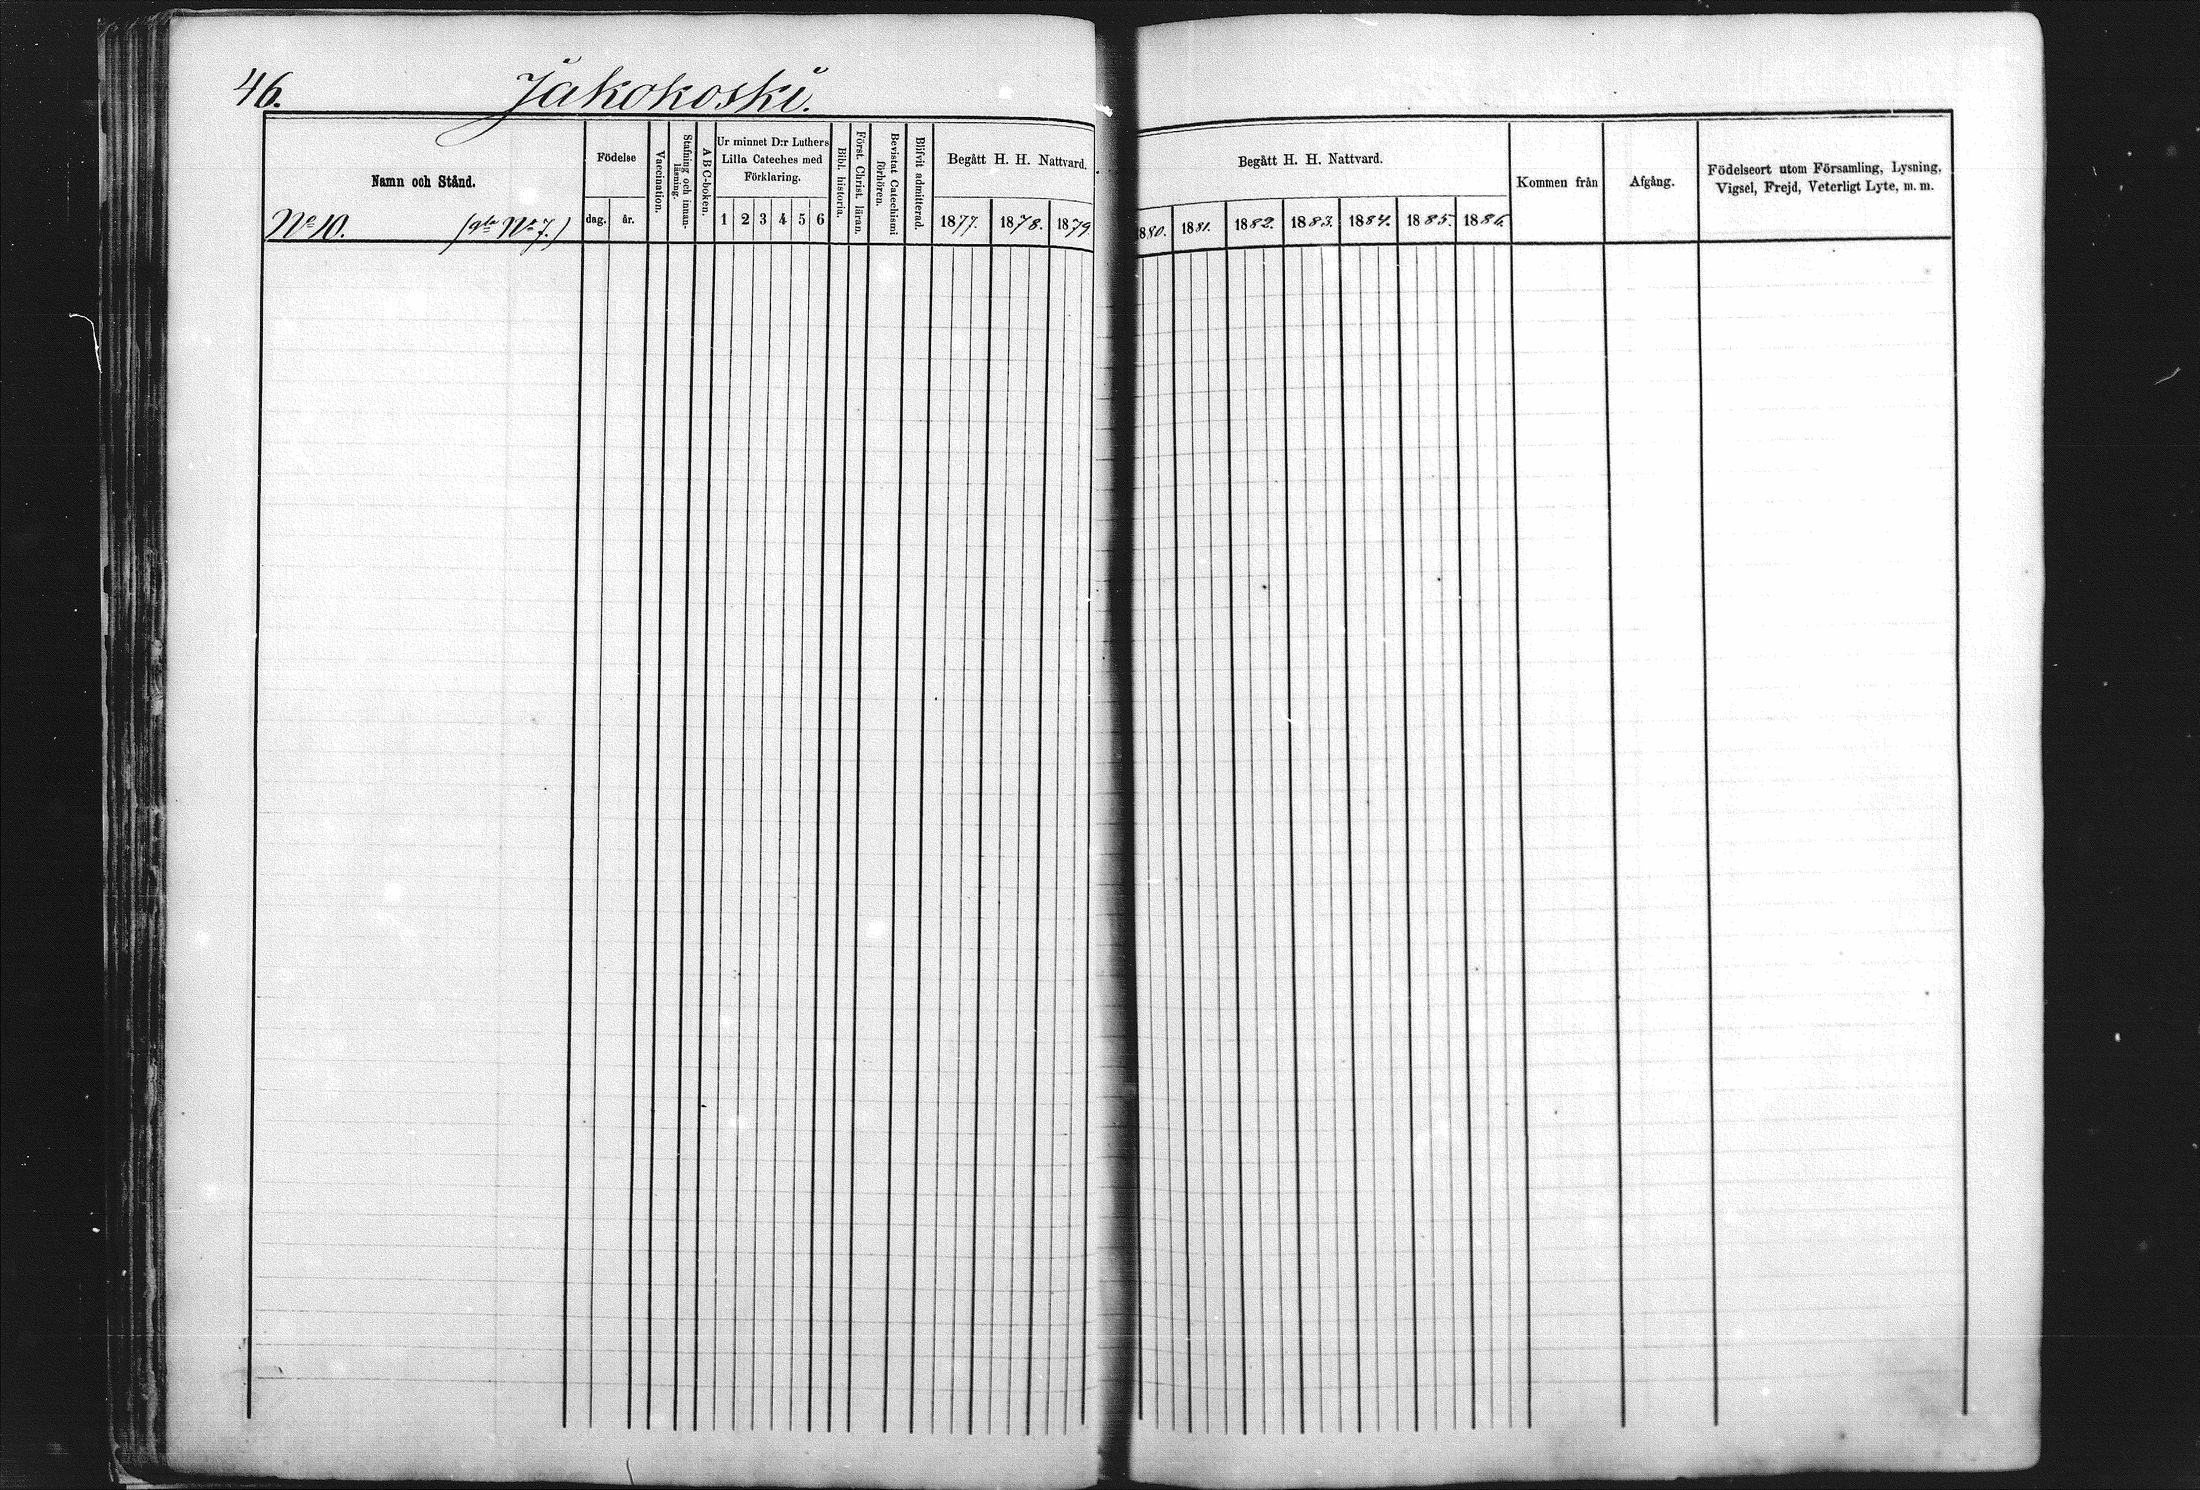 46. Jakokoski.
Namn och Stånd.
No 10. (gla No 7.)
Födelse
dag. år.
Vaccination.
Stafning och innan-
läsning.
A B C-boken.
Ur minnet D:r Luthers
Lilla Cateches med
Förklaring.
1 2 3 4 5 6
Bibl. historia.
Först. Christ. läran.
Bevistat Catechismi
förhören.
Blifvit admitterad.
Begått H. H. Nattvard.
1877. 1878. 1879
Begått H. H. Nattvard.
880. 1881. 1882. 1883. 1884. 1885. 1886.
Kommen från
Afgång.
Födelseort utom Församling, Lysning,
Vigsel, Frejd, Veterligt Lyte, m. m.